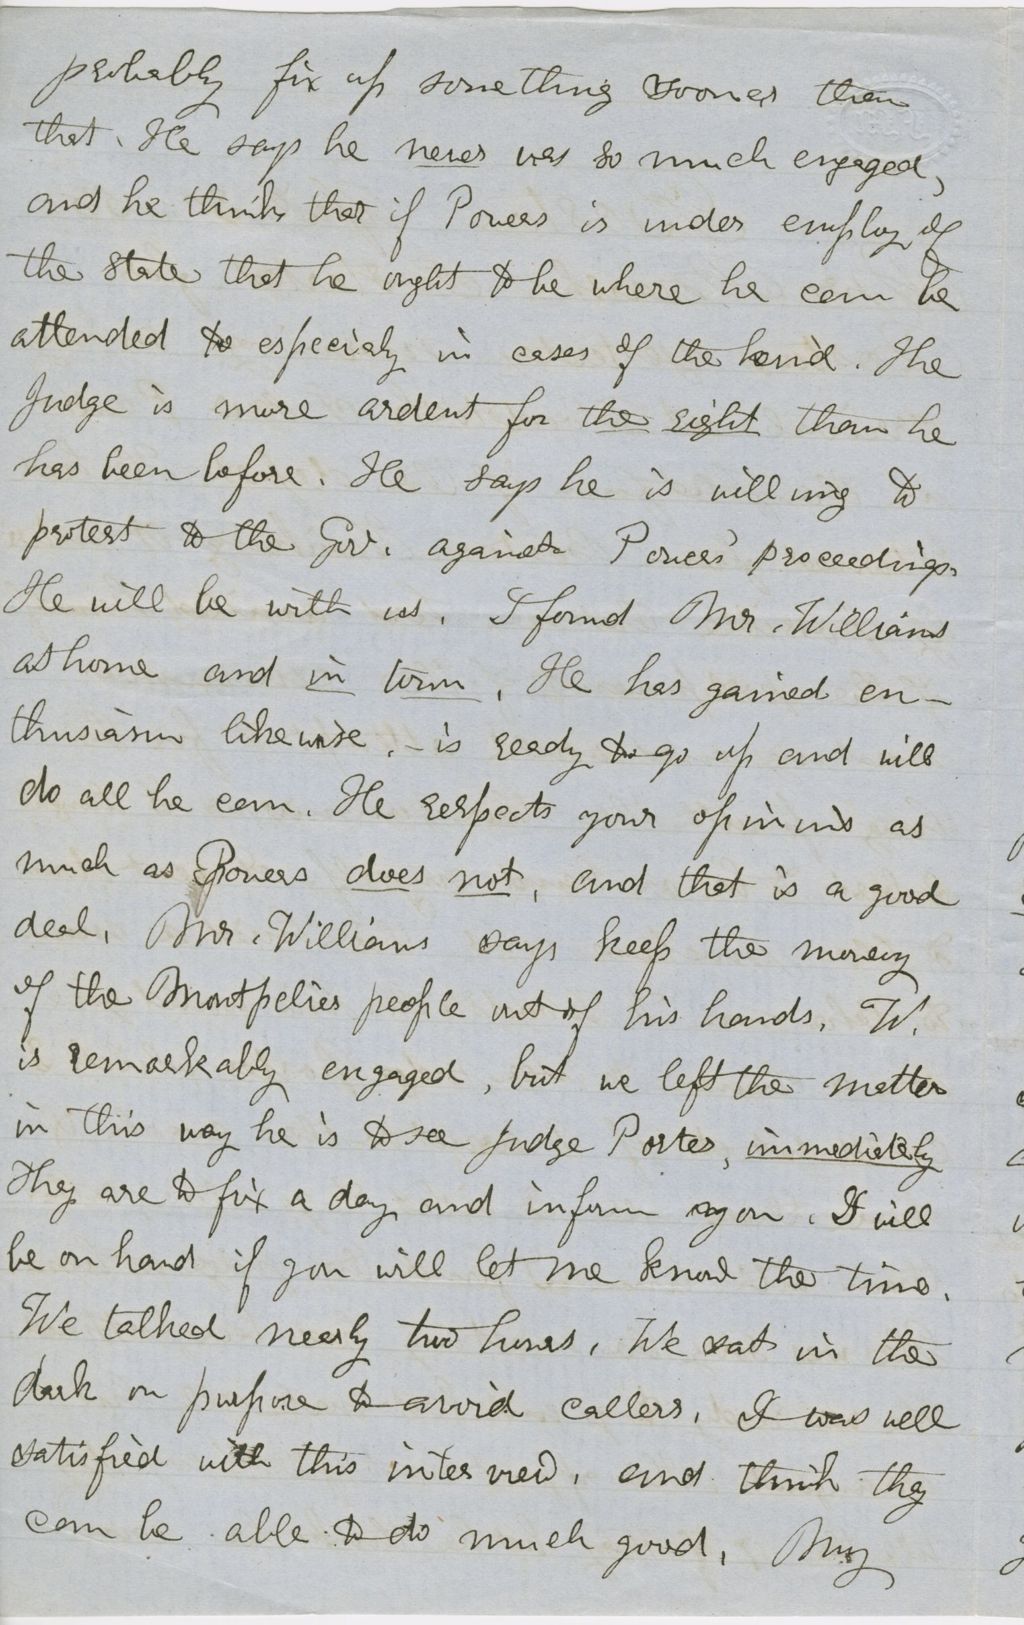 probably fix up something sooner than
that. He says he never was so much engaged,
and he thinks that if Powers is under employ of
the State that he ought to be where he can be
attended to especialy in cases of the kind. The
Judge is more ardent for the right than he
has been before. He says he is willing to
protest to the Gov. against Powers' proceedings.
He will be with us. I found Mr. Williams
at home and in town. He has gained en-
thusiasm likewise, - is ready to go up and will
do all he can. He respects your opinions as
much as Powers does not, and that is a good
deal. Mr. Williams says keep the money
of the Montpelier people out of his hands. W.
is remarkably engaged, but we left the matter
in this way he is to see Judge Porter, immediately
They are to fix a day and inform you. I will
be on hand if you will let me know the time.
We talked nearly two hours. We sat in the
dark on purpose to avoid callers. I was well
satisfied with this interview, and think they
can be able to do much good. My